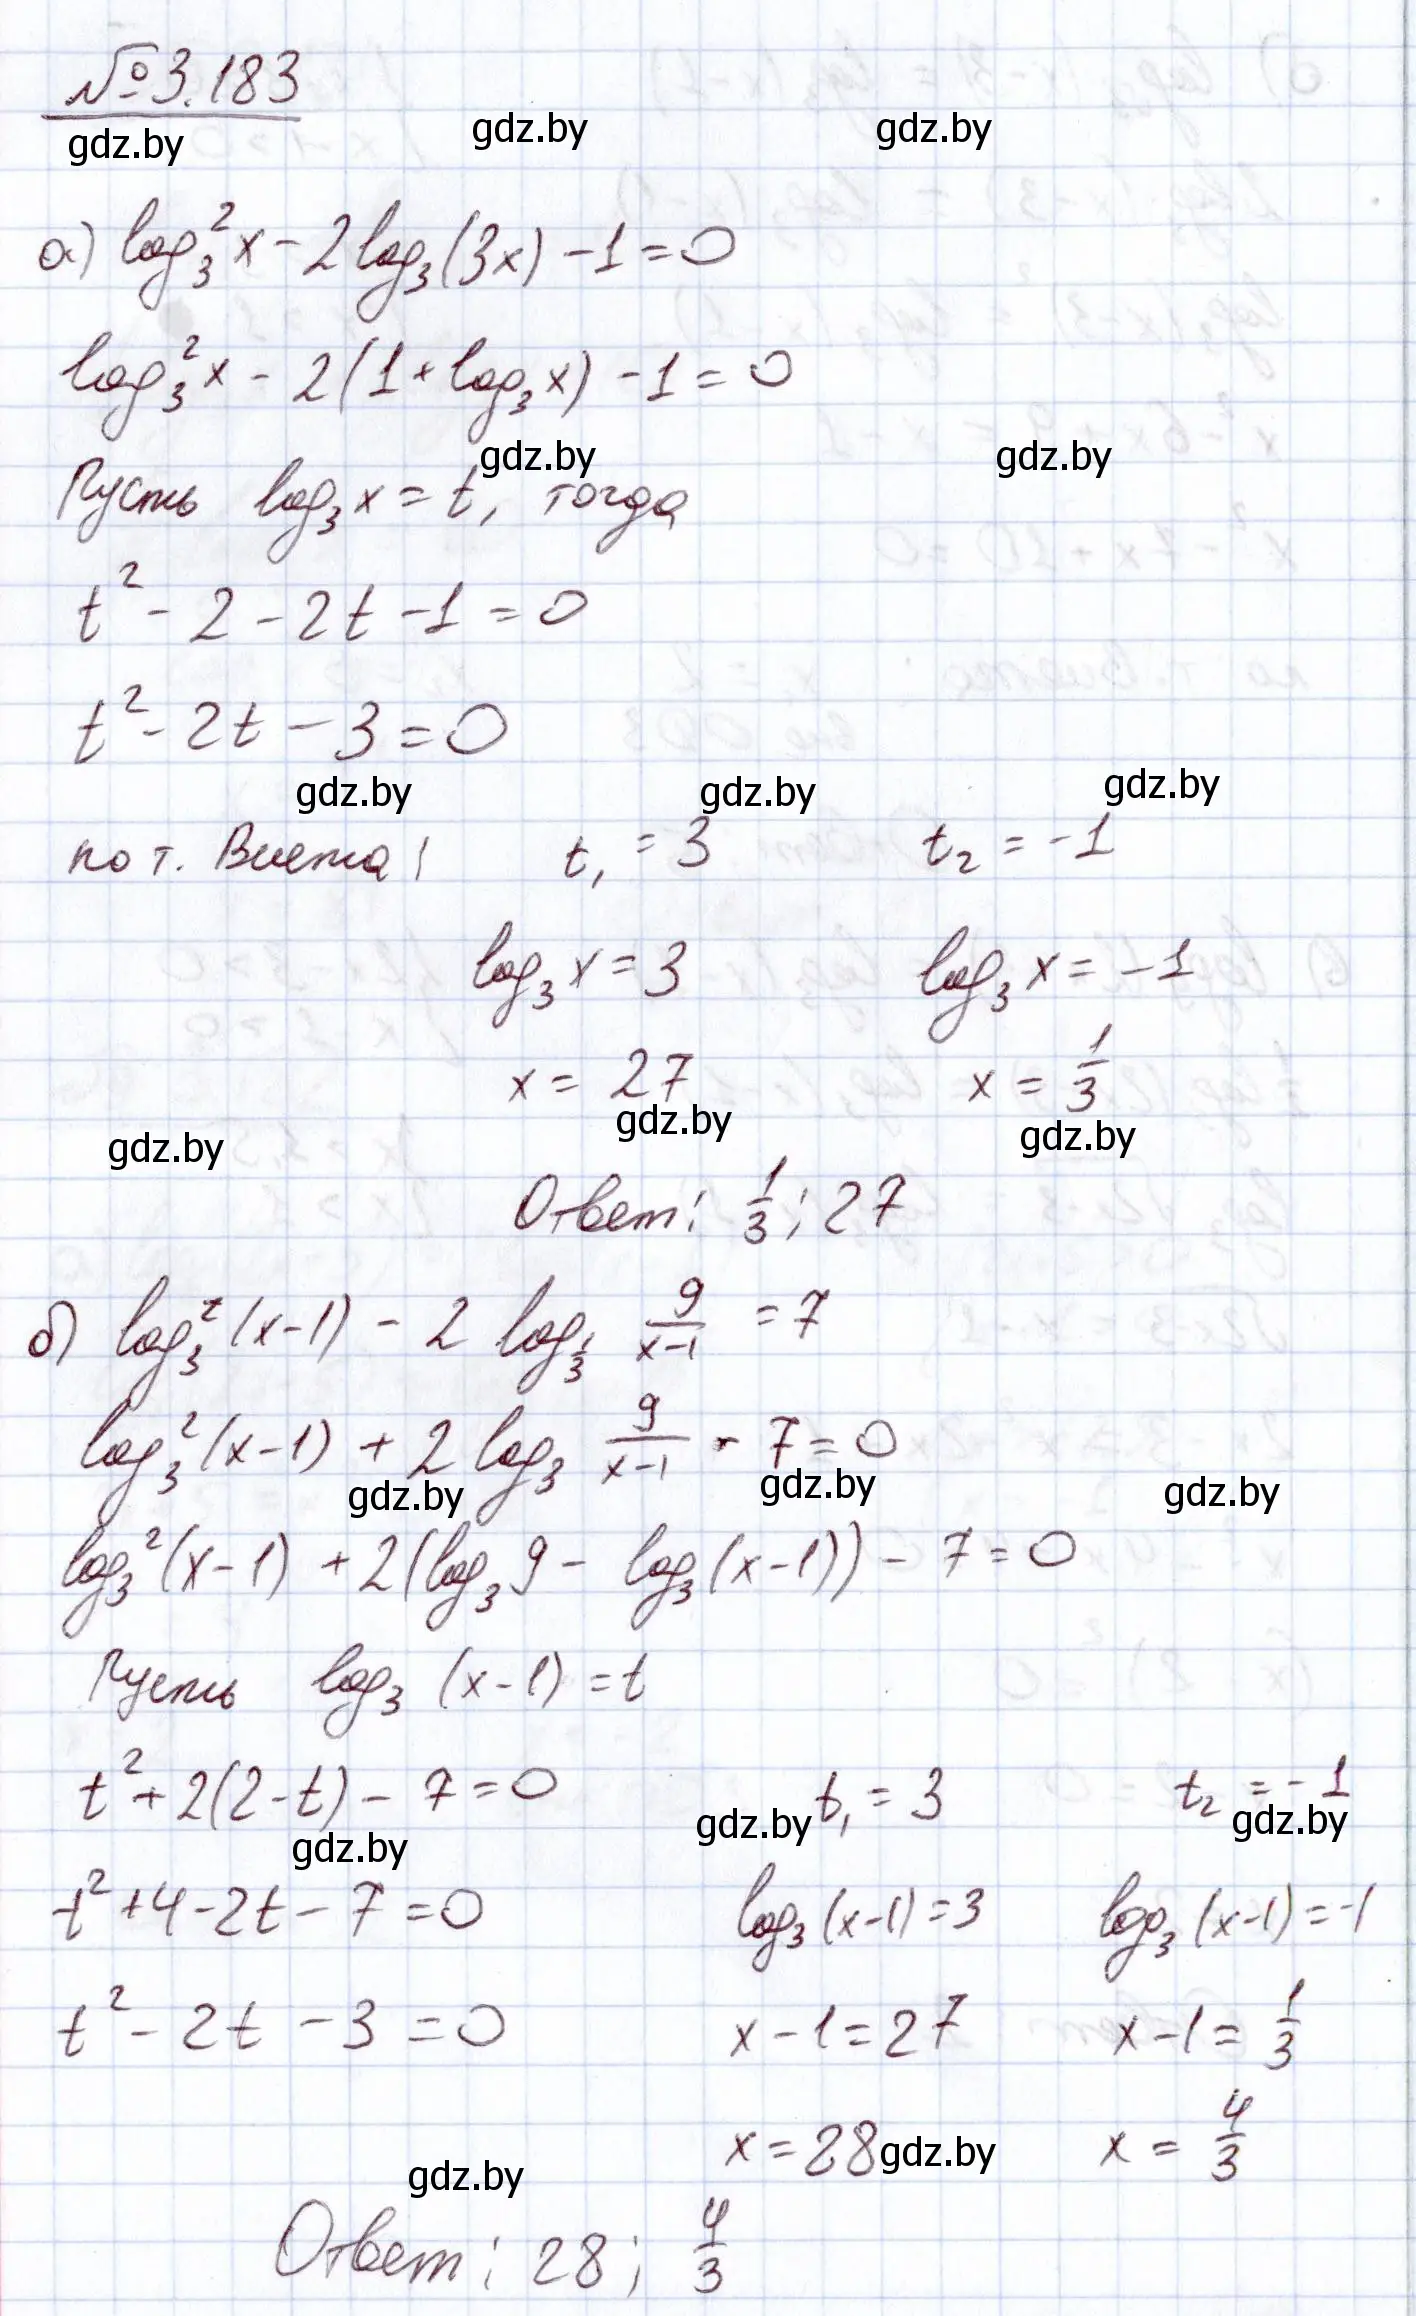 №3.183
gdz.by gdz.by gdz.by
а) log₃²x - 2log₃(3x) - 1 = 0
log₃²x - 2(1 + log₃x) - 1 = 0
gdz.by gdz.by
Пусть log₃x = t, тогда
t² - 2 - 2t - 1 = 0
t² - 2t - 3 = 0
gdz.by gdz.by gdz.by
по т. Виета: t₁ = 3 t₂ = -1
log₃x = 3 log₃x = -1
x = 27 x = 1/3
gdz.by gdz.by gdz.by
Ответ: 1/3; 27
б) log₃²(x-1) - 2 log_{1/3} 9/(x-1) = 7
log₃²(x-1) + 2 log₃ 9/(x-1) - 7 = 0
gdz.by gdz.by gdz.by
log₃²(x-1) + 2(log₃9 - log₃(x-1)) - 7 = 0
Пусть log₃(x-1) = t
t² + 2(2-t) - 7 = 0 t₁ = 3 t₂ = -1
gdz.by gdz.by gdz.by
t² + 4 - 2t - 7 = 0 log₃(x-1) = 3 log₃(x-1) = -1
t² - 2t - 3 = 0 x - 1 = 27 x - 1 = 1/3
x = 28 x = 4/3
gdz.by gdz.by
Ответ: 28; 4/3